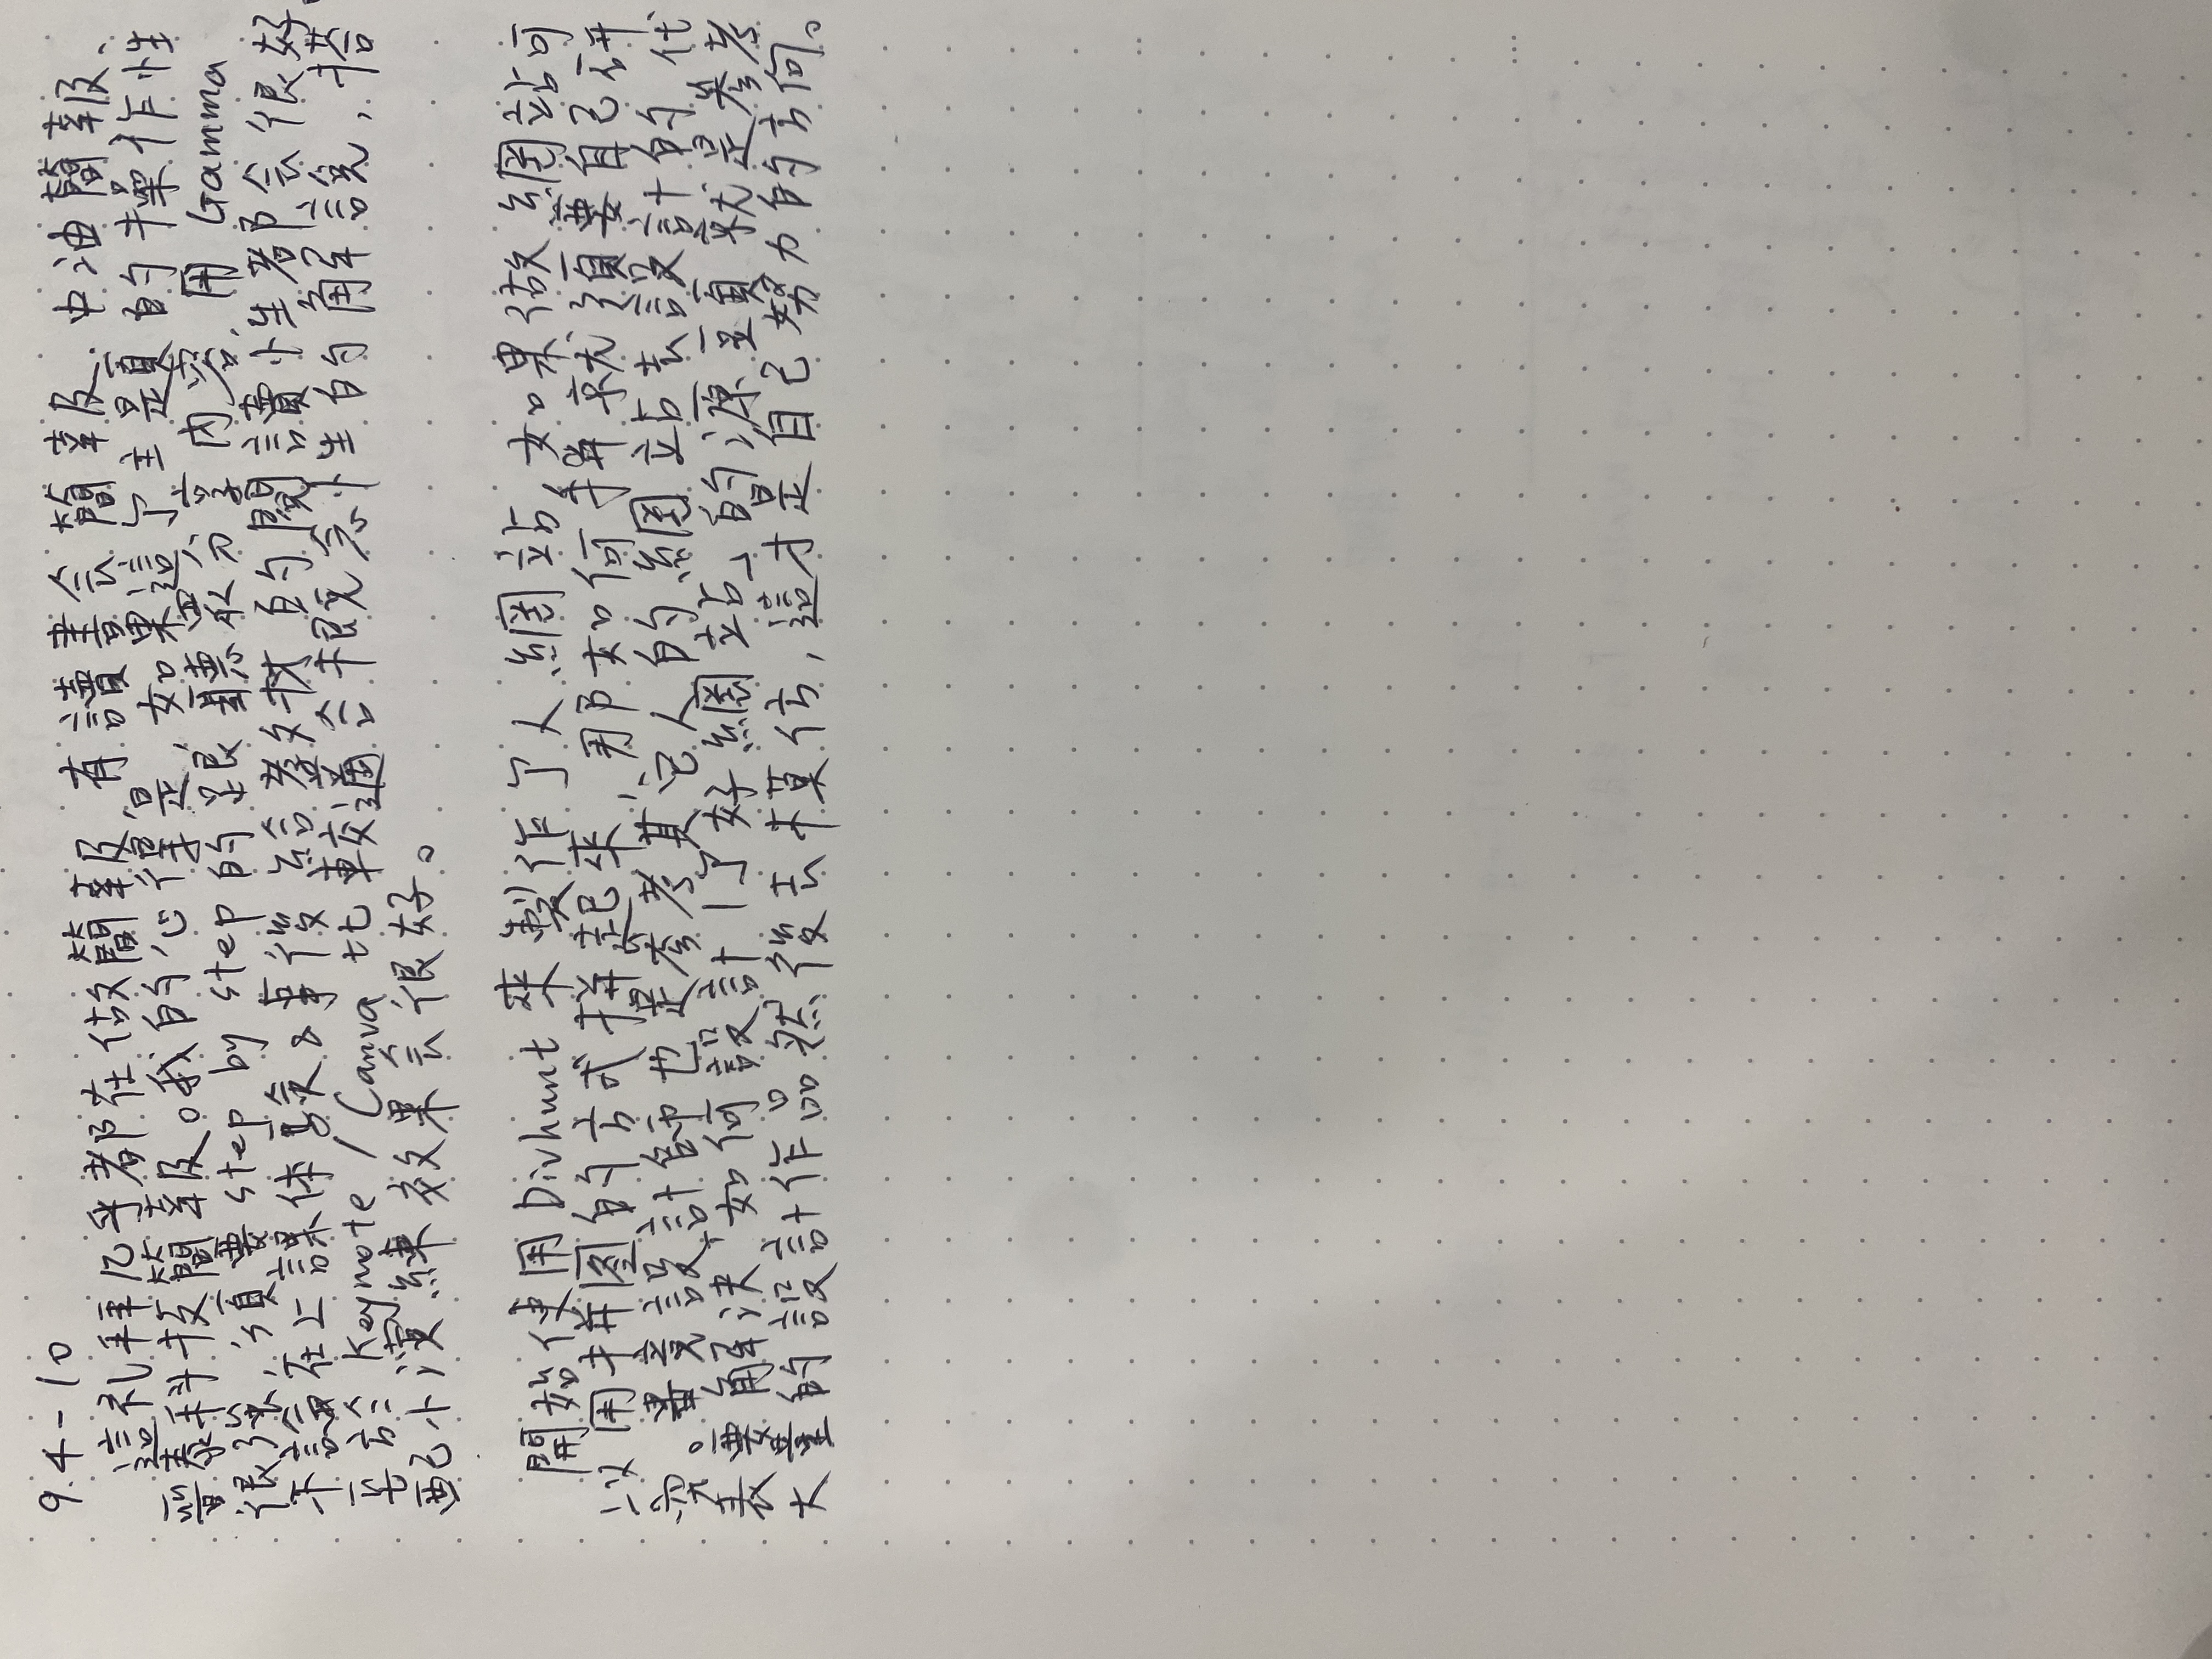 9.4-10
這礼拜几乎都在做簡報,有讀書会簡報、中油簡報、
晉泰科技簡報。我的心得是,如果這个主題的操作性
很強,須要 step by step 的跟聽眾分享內容,用 Gamma
不論在上課体驗&事後給教材的閱讀性都会很好。
至於 Keynote / Canva 比較適合概念性的解說,搭
配小演練效果会很好。
開始使用 Divhunt 來製作个人網站,如果做網站可
以用拼图的方式拼起來,那如何拼就須要自己研
究。畢竟設計師也是參考其它人的網站去設計的,代
表要解決「如何設計1个好網站」的源頭就是參考
大量的設計作品然後去模仿,這才是自己努力的方向。